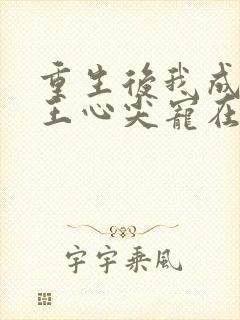 重生後我成
王心尖寵在
宇宇乘風